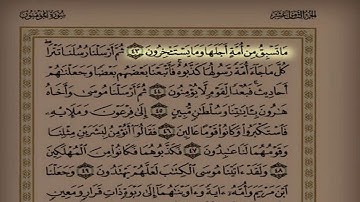 سورة المؤمنون
الجزء الثامن عشر
مَا تَسْبِقُ مِنْ أُمَّةٍ أَجَلَهَا وَمَا يَسْتَـْٔخِرُونَ ٤٣ ثُمَّ أَرْسَلْنَا رُسُلَنَا تَتْرَا
كُلَّ مَا جَآءَ أُمَّةً رَّسُولُهَا كَذَّبُوهُ فَأَتْبَعْنَا بَعْضَهُم بَعْضًا وَجَعَلْنَٰهُمْ
أَحَادِيثَ فَبُعْدًا لِّقَوْمٍ لَّا يُؤْمِنُونَ ٤٤ ثُمَّ أَرْسَلْنَا مُوسَىٰ وَأَخَاهُ
هَٰرُونَ بِـَٔايَٰتِنَا وَسُلْطَٰنٍ مُّبِينٍ ٤٥ إِلَىٰ فِرْعَوْنَ وَمَلَإِي۟هِۦ
فَٱسْتَكْبَرُوا۟ وَكَانُوا۟ قَوْمًا عَالِينَ ٤٦ فَقَالُوٓا۟ أَنُؤْمِنُ لِبَشَرَيْنِ مِثْلِنَا
وَقَوْمُهُمَا لَنَا عَٰبِدُونَ ٤٧ فَكَذَّبُوهُمَا فَكَانُوا۟ مِنَ ٱلْمُهْلَكِينَ
٤٨ وَلَقَدْ ءَاتَيْنَا مُوسَى ٱلْكِتَٰبَ لَعَلَّهُمْ يَهْتَدُونَ ٤٩ وَجَعَلْنَا
ٱبْنَ مَرْيَمَ وَأُمَّهُۥٓ ءَايَةً وَءَاوَيْنَٰهُمَآ إِلَىٰ رَبْوَةٍ ذَاتِ قَرَارٍ وَمَعِينٍ